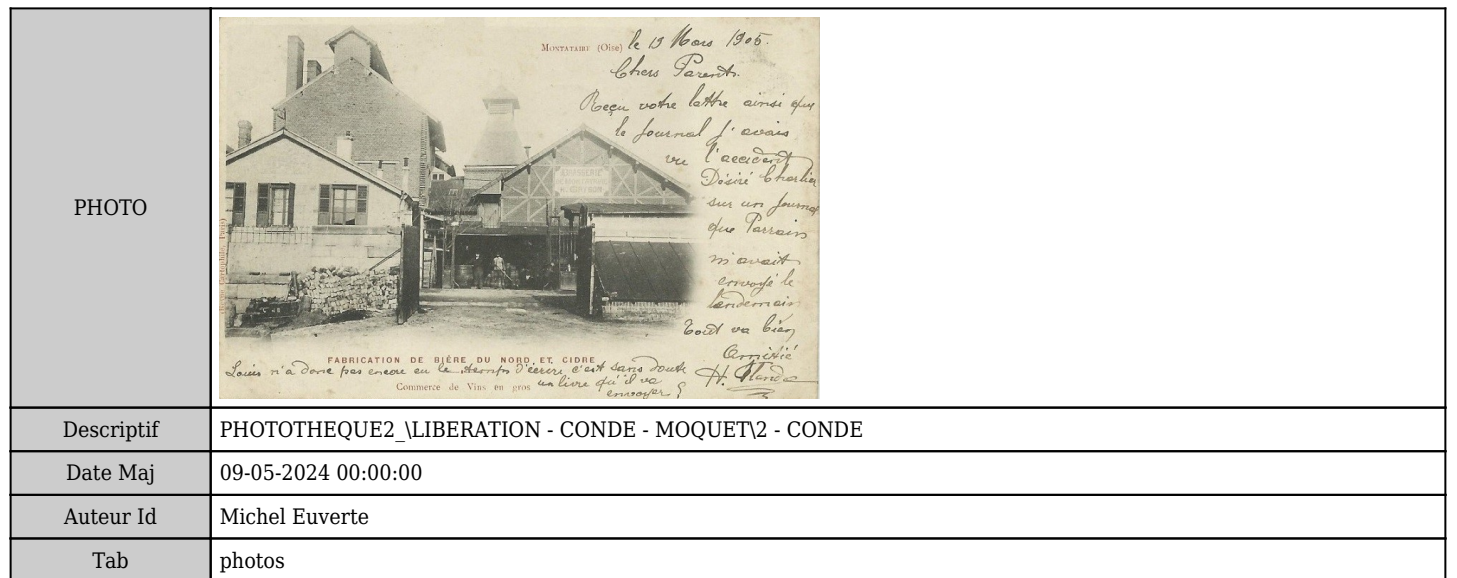 PHOTO
MONTATAIRE (Oise)
le 19 Mars 1905.
Chers Parents.
Reçu votre lattre ainsi que
le Journal j'avais
vu l'accident
Désiré Charlier
sur un journal
que Parrain
m'avait
envoyé le
landemain
Tout va bien
Amitié
FABRICATION DE BIÈRE DU NORD ET CIDRE
Louis n'a donc pas encore eu le temps d'écrire c'est sans doute
Commerce de Vins en gros
un livre qu'il va
envoyer
Descriptif
PHOTOTHEQUE2_\LIBERATION - CONDE - MOQUET\2 - CONDE
Date Maj
09-05-2024 00:00:00
Auteur Id
Michel Euverte
Tab
photos